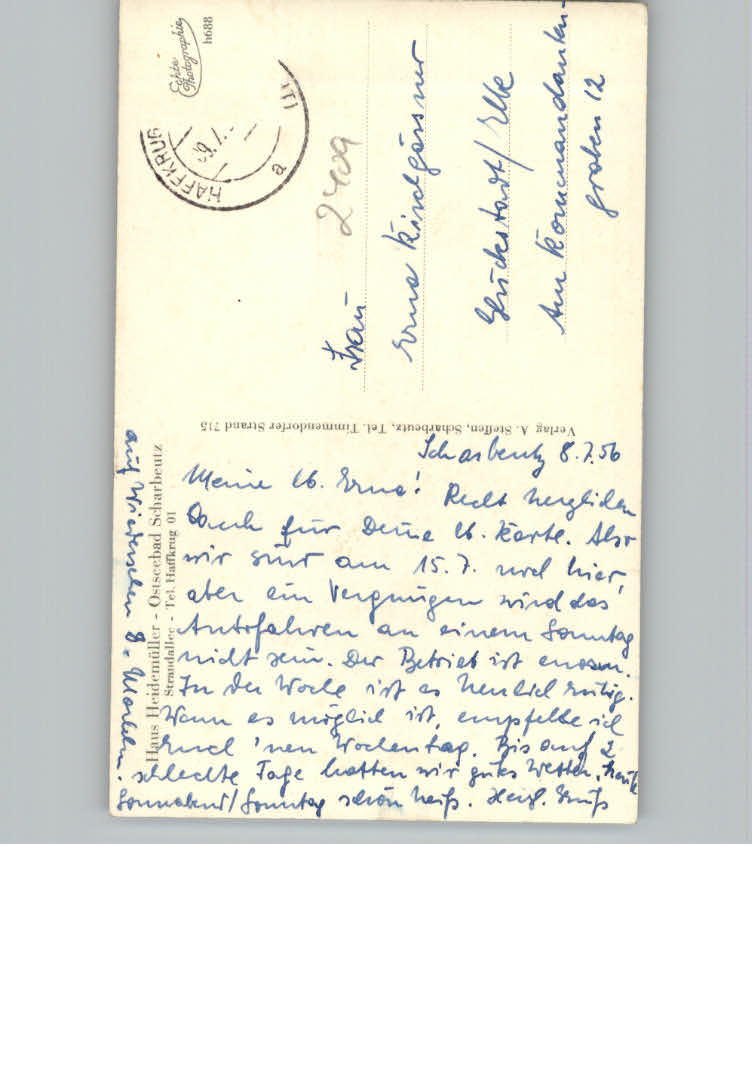 Echte
Photographie
h688
HAFFKRUG
a
2409
Frau
Erna Kirchgässner
Glückstadt/Elbe
Am Kommandanten-
graben 12
Verlag A. Steffen, Scharbeutz, Tel. Timmendorfer Strand 715
Haus Heidemüller - Ostseebad Scharbeutz
Strandallee - Tel. Haffkrug 01
Scharbeutz 8.7.56
Meine lb. Erna! Recht herzlichen
Dank für Deine lb. Karte. Also
wir sind am 15.7. noch hier,
aber ein Vergnügen wird das
Autofahren an einem Sonntag
nicht sein. Der Betrieb ist enorm.
In der Woche ist es ziemlich ruhig.
Wenn es möglich ist, empfehle ich
Euch 'nen Wochentag. Bis auf 2
schlechte Tage hatten wir gutes Wetter, heute
Sonnabend/Sonntag schön heiß. Herzl. Gruß
auf Wiedersehen